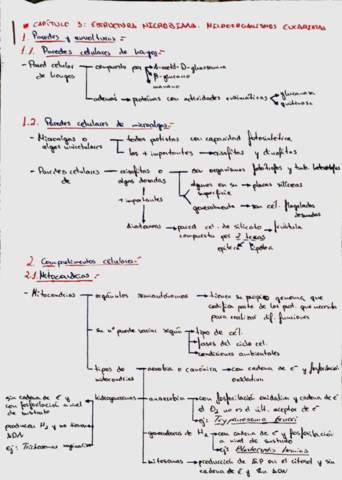 CAPÍTULO 3: ESTRUCTURA MICROBIANA. MICROORGANISMOS EUCARIOTAS
1. Paredes y envolturas
1.1. Paredes celulares de hongos
- Pared celular de hongos → compuesta por → N-acetil-D-glucosamina
β-glucano
manano
además → proteínas con actividades enzimáticas → glucanasa
quitinasa
1.2. Paredes celulares de microalgas
- Microalgas o algas unicelulares → todos protistas con capacidad fotosintética
los + importantes → crisófitas y dinófitas
- Paredes celulares de → crisófitas o algas doradas → son organismos fotótrofos y tmb. heterótrofos
algunos en su superficie → placas silíceas
generalmente → son cél. flageladas desnudas
+ importantes
diatomeas → pared cel. de silicato compuesta por 2 tecas → frústula
epiteca
hipoteca
2. Compartimentos celulares
2.1. Mitocondrias
- Mitocondrias → orgánulos semiautónomos → tienen su propio genoma, que codifica parte de las prot. que necesita para realizar dif. funciones
su nº puede variar según → tipo de cél.
fases del ciclo cel.
condiciones ambientales
tipos de mitocondrias → aerobia o canónica → con cadena de e⁻ y fosforilación oxidativa
anaerobia → con fosforilación oxidativa y cadena de e⁻
el O₂ no es el últ. aceptor de e⁻
hidrogenosomas
sin cadena de e⁻ y con fosforilación a nivel de sustrato
producen H₂ y no tienen ADN
ej: Trichomonas vaginalis
generadoras de H₂ → con cadena de e⁻ y fosforilación a nivel de sustrato
mitosomas → producción de ATP en el citosol y sin cadena de e⁻ y sin ADN